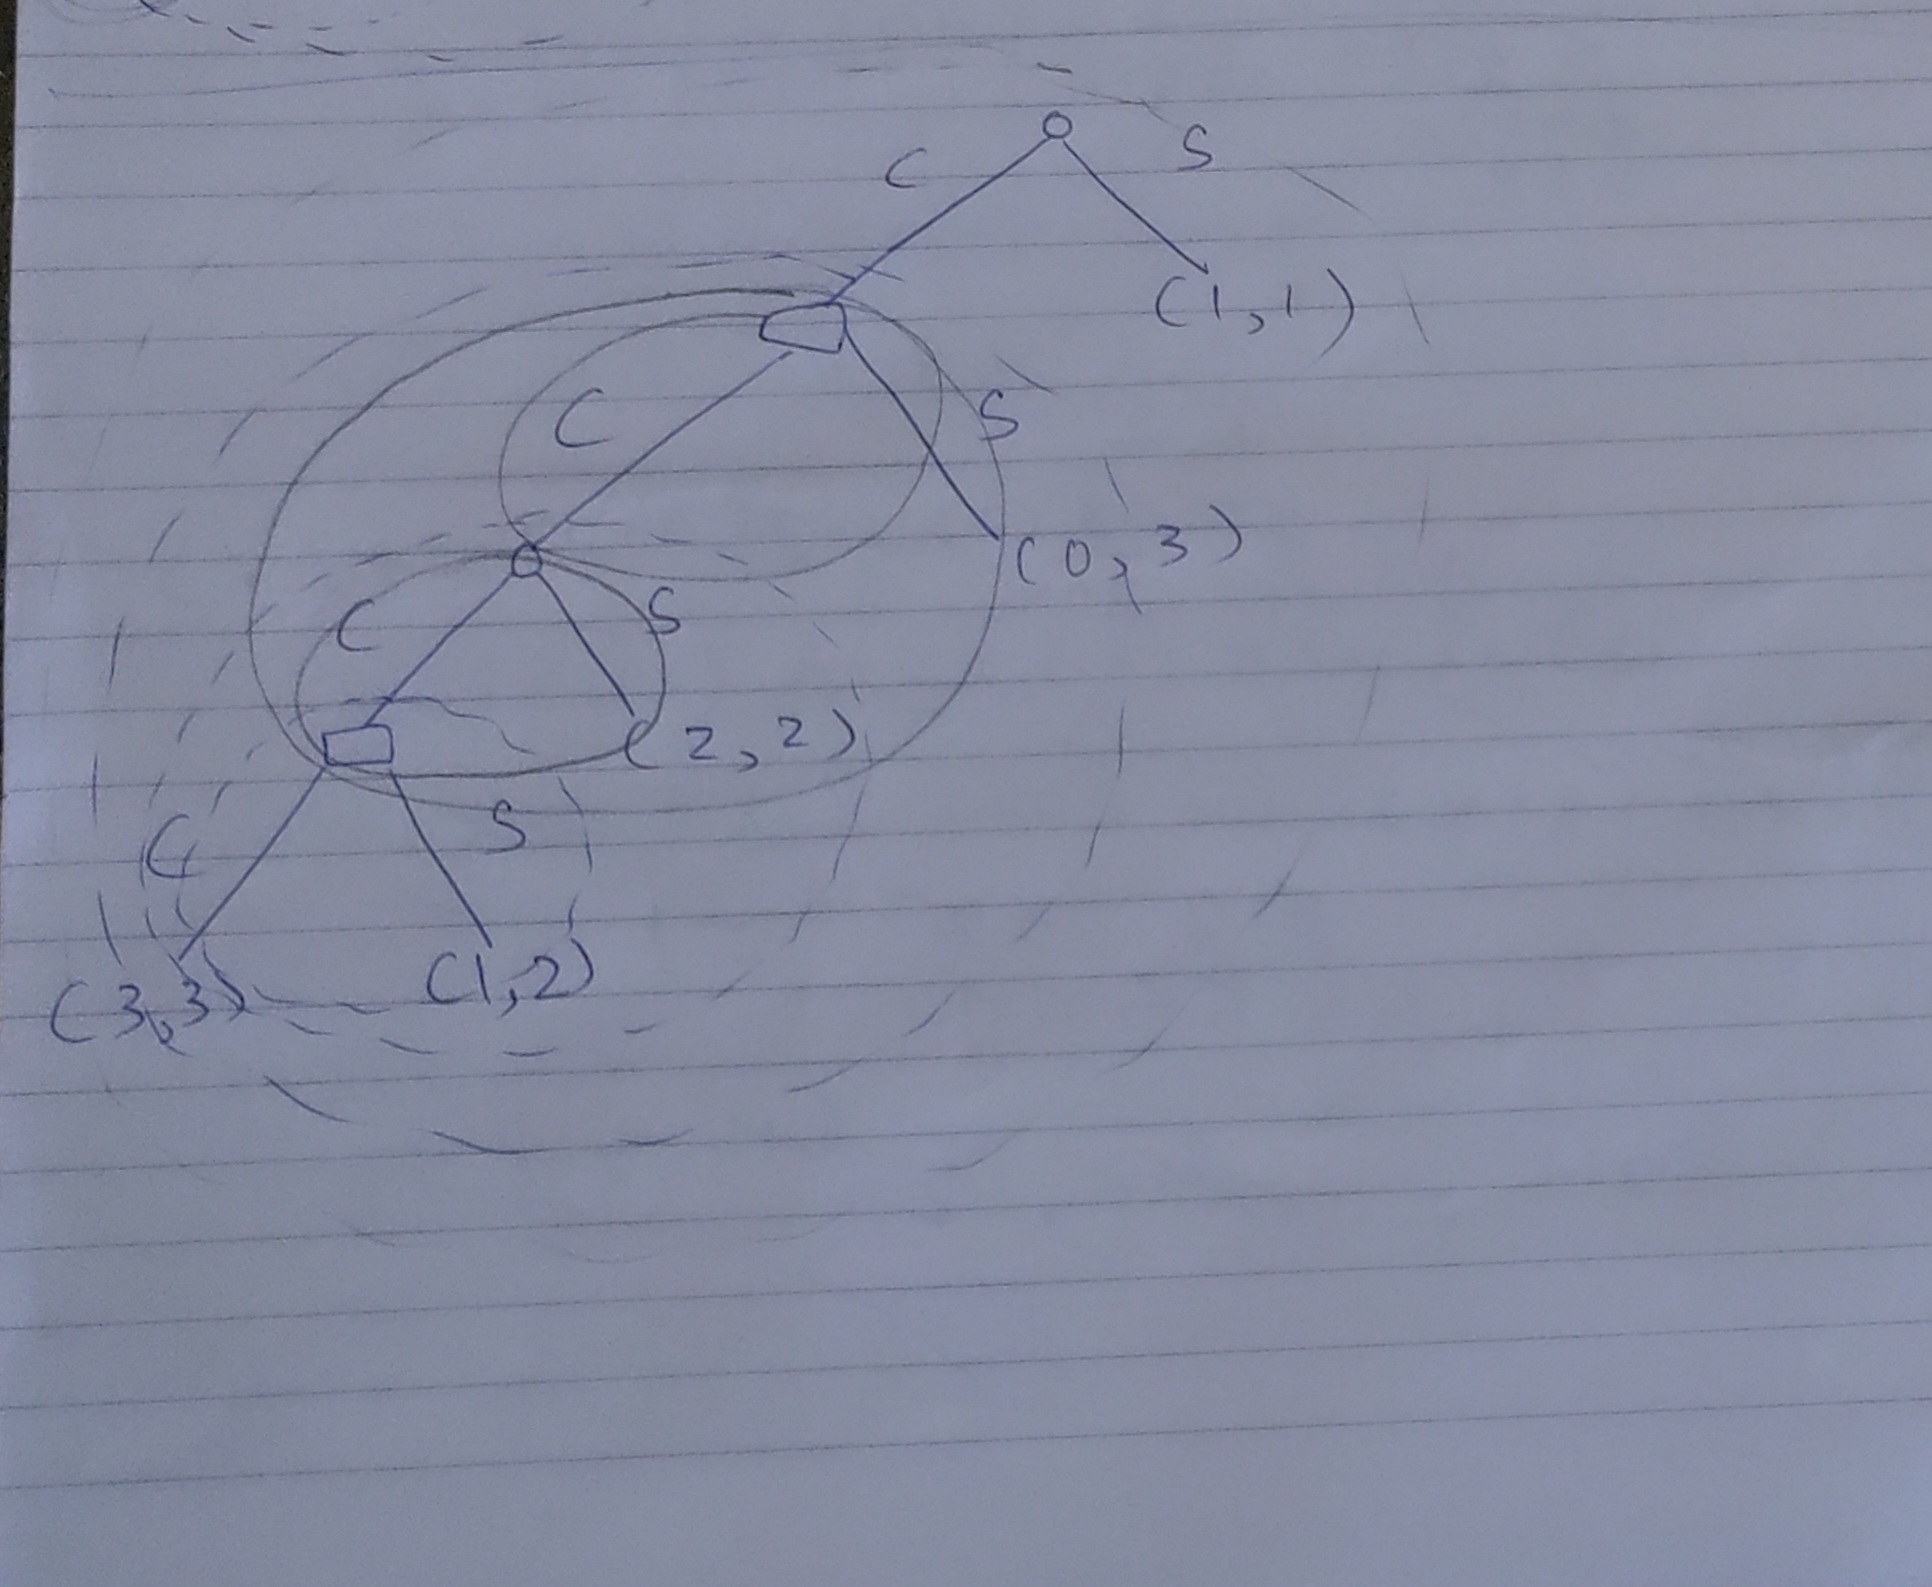 C S
(1,1)
C S
(0,3)
C S
(2,2)
C S
(3,3) (1,2)